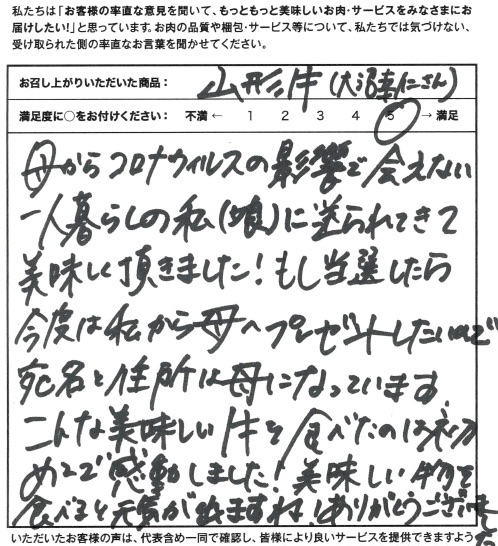 私たちは「お客様の率直な意見を聞いて、もっともっと美味しいお肉・サービスをみなさまにお
届けしたい!」と思っています。お肉の品質や梱包・サービス等について、私たちでは気づけない、
受け取られた側の率直なお言葉を聞かせてください。
お召し上がりいただいた商品: 山形牛(大沼孝仁さん)
満足度に○をお付けください: 不満 ← 1 2 3 4 5 → 満足
母からコロナウィルスの影響で会えない
一人暮らしの私(娘)に送られてきて
美味しく頂きました!もし当選したら
今度は私から母へプレゼントしたいので
宛名と住所は母になっています。
こんな美味しい牛を食べたのは初
めてで感動しました!美味しい物を
食べると元気が出ますね!ありがとうございました
いただいたお客様の声は、代表含め一同で確認し、皆様により良いサービスを提供できますよう